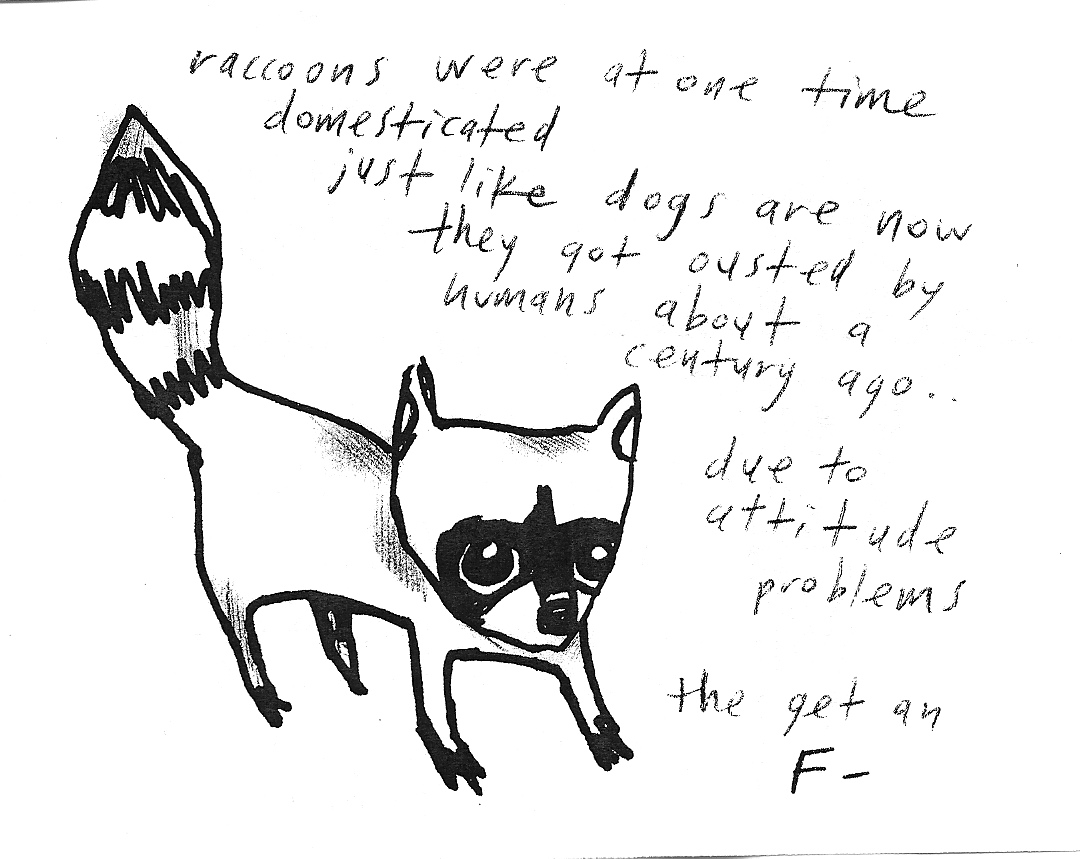 raccoons were at one time
domesticated
just like dogs are now
they got ousted by
humans about a
century ago..
due to
attitude
problems
the get an
F-